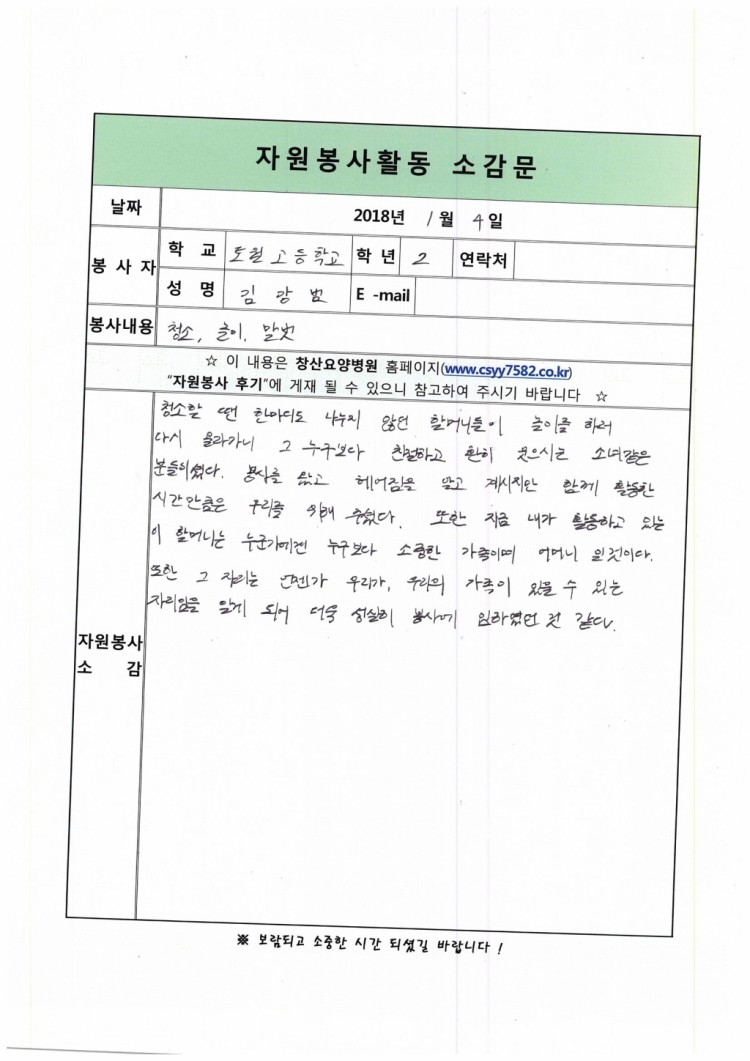 자원봉사활동 소감문
날짜 2018년 1월 4일
봉사자 학교 도원고등학교 학년 2 연락처
성명 김광범 E-mail
봉사내용 청소, 놀이, 말벗
☆ 이 내용은 창산요양병원 홈페이지(www.csyy7582.co.kr)
"자원봉사 후기"에 게재 될 수 있으니 참고하여 주시기 바랍니다 ☆
자원봉사 소감
청소할 땐 한마디도 나누지 않던 할머니들이 놀이를 하러
다시 올라가니 그 누구보다 친절하고 환히 웃으시는 소녀같은
분들이셨다. 봉사를 왔고 헤어짐을 알고 계시지만 함께 활동한
시간만큼은 우리를 위해 주셨다. 또한 지금 내가 활동하고 있는
이 할머니는 누군가에겐 누구보다 소중한 가족이며 어머니 일것이다.
또한 그 자리는 언젠가 우리가, 우리의 가족이 있을 수 있는
자리임을 알게 되어 더욱 성실히 봉사에 임하였던 것 같다.
※ 보람되고 소중한 시간 되셨길 바랍니다 !